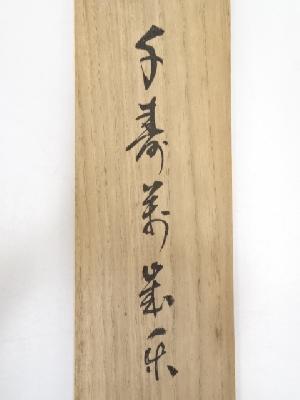 千寿萬歳楽